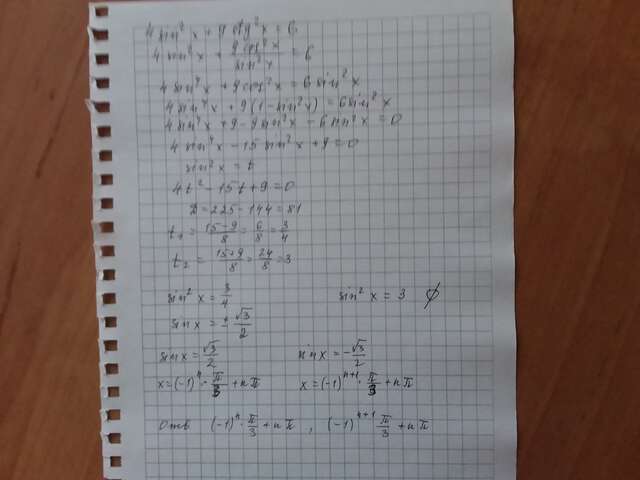 4 sin²x + 9 ctg²x = 6
4 sin²x + 9cos²x/sin²x = 6
4 sin⁴x + 9cos²x = 6 sin²x
4 sin⁴x + 9(1 - sin²x) = 6 sin²x
4 sin⁴x + 9 - 9 sin²x - 6 sin²x = 0
4 sin⁴x - 15 sin²x + 9 = 0
sin²x = t
4t² - 15t + 9 = 0
D = 225 - 144 = 81
t₁ = (15-9)/8 = 6/8 = 3/4
t₂ = (15+9)/8 = 24/8 = 3
sin²x = 3/4 sin²x = 3 ∅
sin x = ± √3/2
sin x = √3/2 sin x = -√3/2
x = (-1)ⁿ · π/3 + nπ x = (-1)ⁿ⁺¹ · π/3 + nπ
Отв (-1)ⁿ · π/3 + nπ , (-1)ⁿ⁺¹ π/3 + nπ